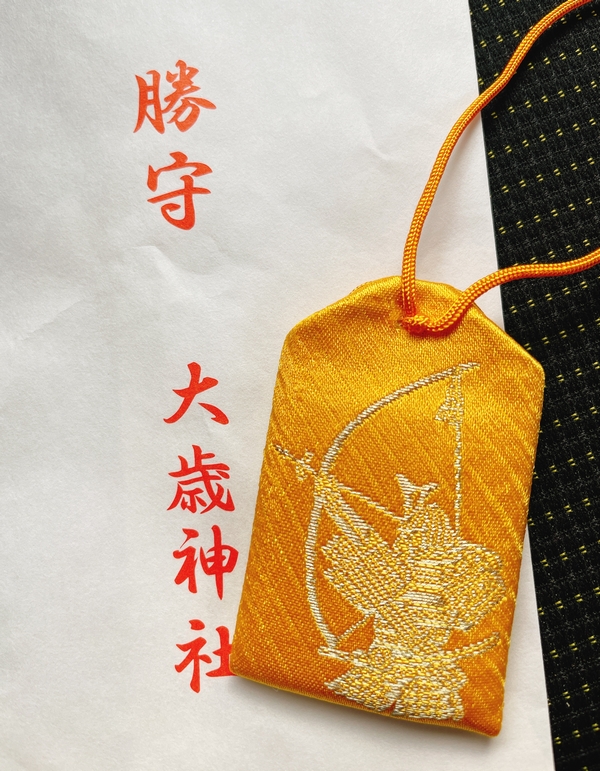 勝守
大歳神社